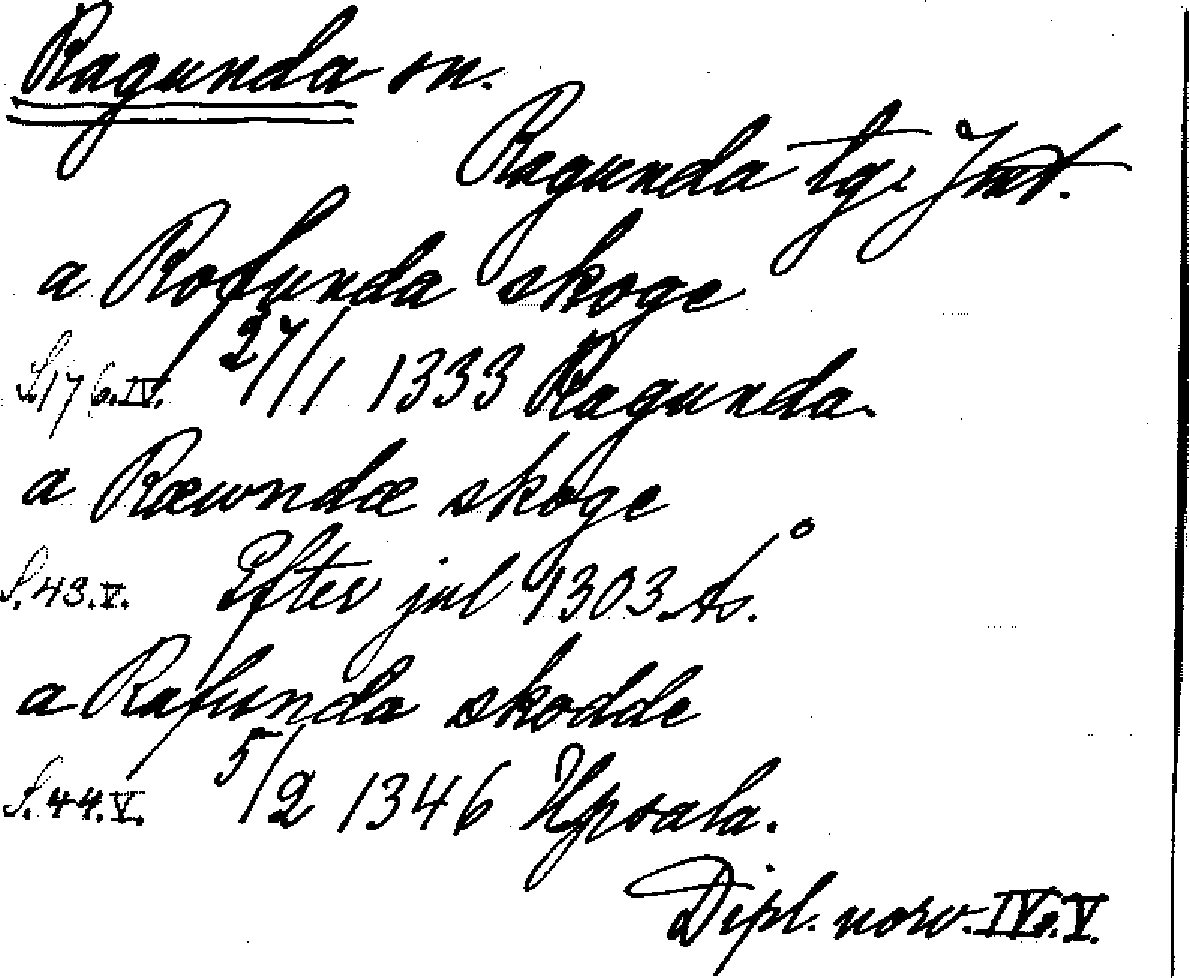 Ragunda sn.
Ragunda tg. Jmt.
a Rofunda skoge
S. 176. IV. 27/1 1333 Ragunda.
a Ræwndæ skoge
S. 43. V. Efter jul 1303 Ås.
a Rafunda skodde
S. 44. V. 5/2 1346 Upsala.
Dipl. norv. IV o. V.